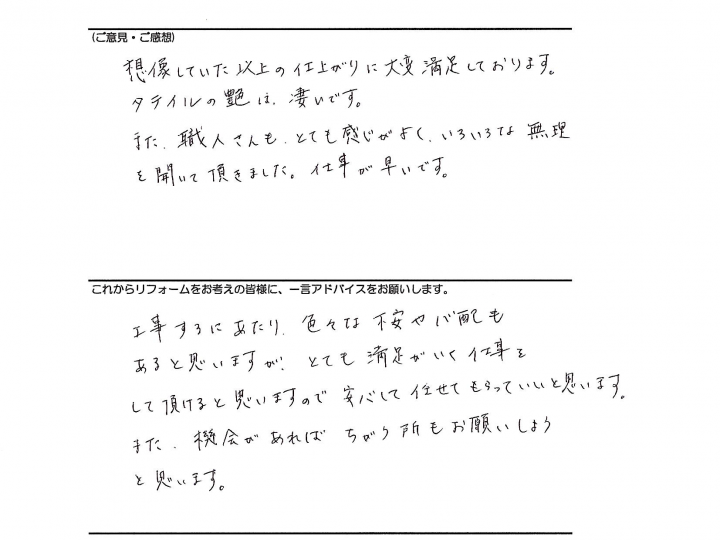 (ご意見・ご感想)
想像していた以上の仕上がりに大変満足しております。
タテイルの艶は、凄いです。
また、職人さんも、とても感じがよく、いろいろな無理
を聞いて頂きました。仕事が早いです。
これからリフォームをお考えの皆様に、一言アドバイスをお願いします。
工事するにあたり、色々な不安や心配も
あると思いますが、とても満足がいく仕事を
して頂けると思いますので安心して任せてもらっていいと思います。
また、機会があれば ちがう所もお願いしよう
と思います。